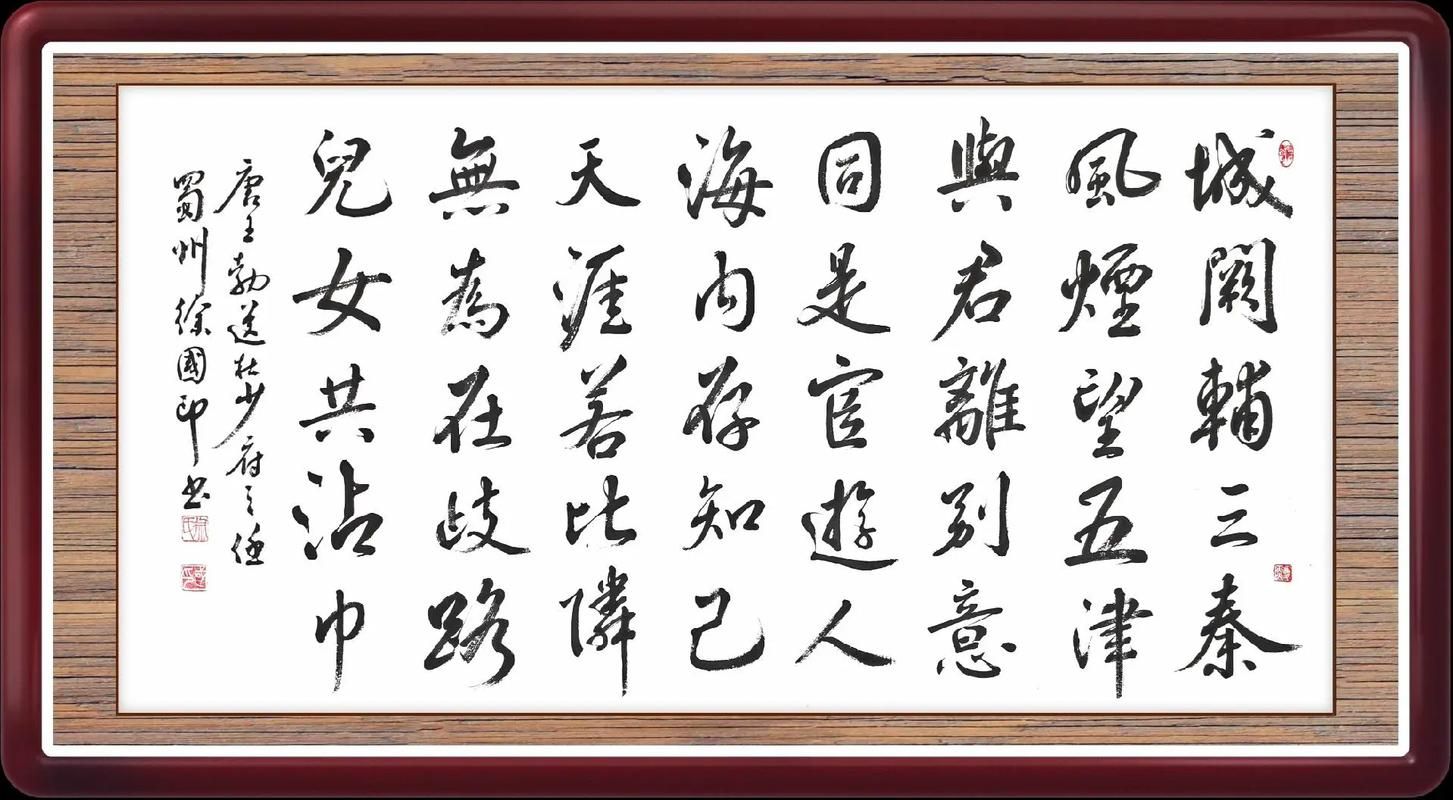 城闕輔三秦
風煙望五津
與君離別意
同是宦遊人
海内存知己
天涯若比隣
無為在歧路
兒女共沾巾
唐王勃送杜少府之任
蜀州徐國印书